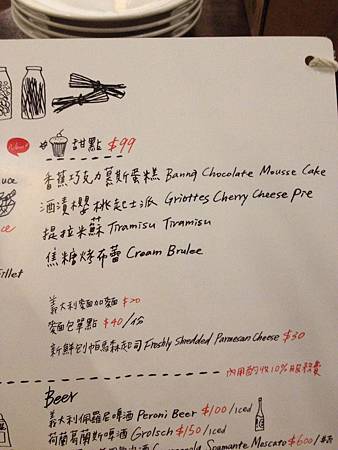 New!
甜點 $99
香蕉巧克力慕斯蛋糕 Banna Chocolate Mousse Cake
酒漬櫻桃起士派 Griottes Cherry Cheese Pie
提拉米蘇 Tiramisu Tiramisu
焦糖烤布蕾 Cream Brulee
義大利麵加麵 $20
麵包單點 $40/份
新鮮刨帕瑪森起司 Freshly Shredded Parmesan Cheese $30
內用酌收10%服務費
Beer
義大利佩羅尼啤酒 Peroni Beer $100/iced
荷蘭葛蘭斯啤酒 Grolsch $150/iced
Spumante Moscato $600/